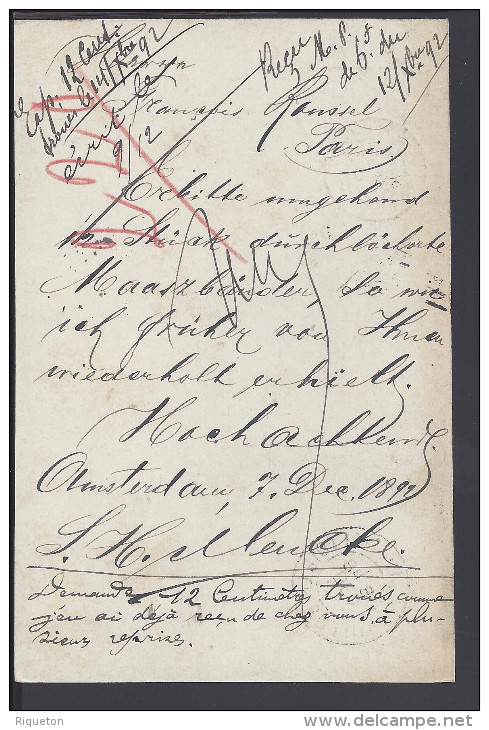 Cap. 12 Cent.
troués le 14/Xbre 92
écrit le
9/12
Reçu M. P. 5
de 6. du
12/Xbre 92
Herrn
François Roussel
Paris
Erbitte umgehend
12 Stück durchlöcherte
Maaszbänder, so wie
ich früher von Ihnen
wiederholt erhielt.
Hochachtend
Amsterdam, 7. Dec. 1892
S. H. Mencke.
Demande 12 Centimètres troués comme
j'en ai déjà reçu de chez vous à plu-
sieurs reprises.
Riqueton
www.delcampe.net